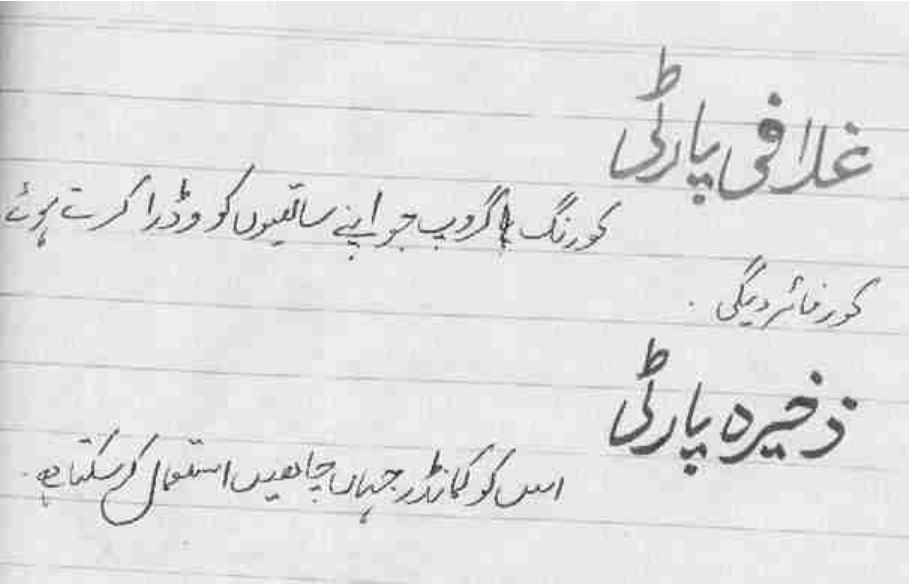 غلافی پارٹی
کورنگ گروپ جو اپنے ساتھیوں کو وڈرا کرتے ہوئے
کور فائر دیگی .
ذخیرہ پارٹی
اس کو کمانڈر جہاں چاھیں استعمال کرسکتا ھے.